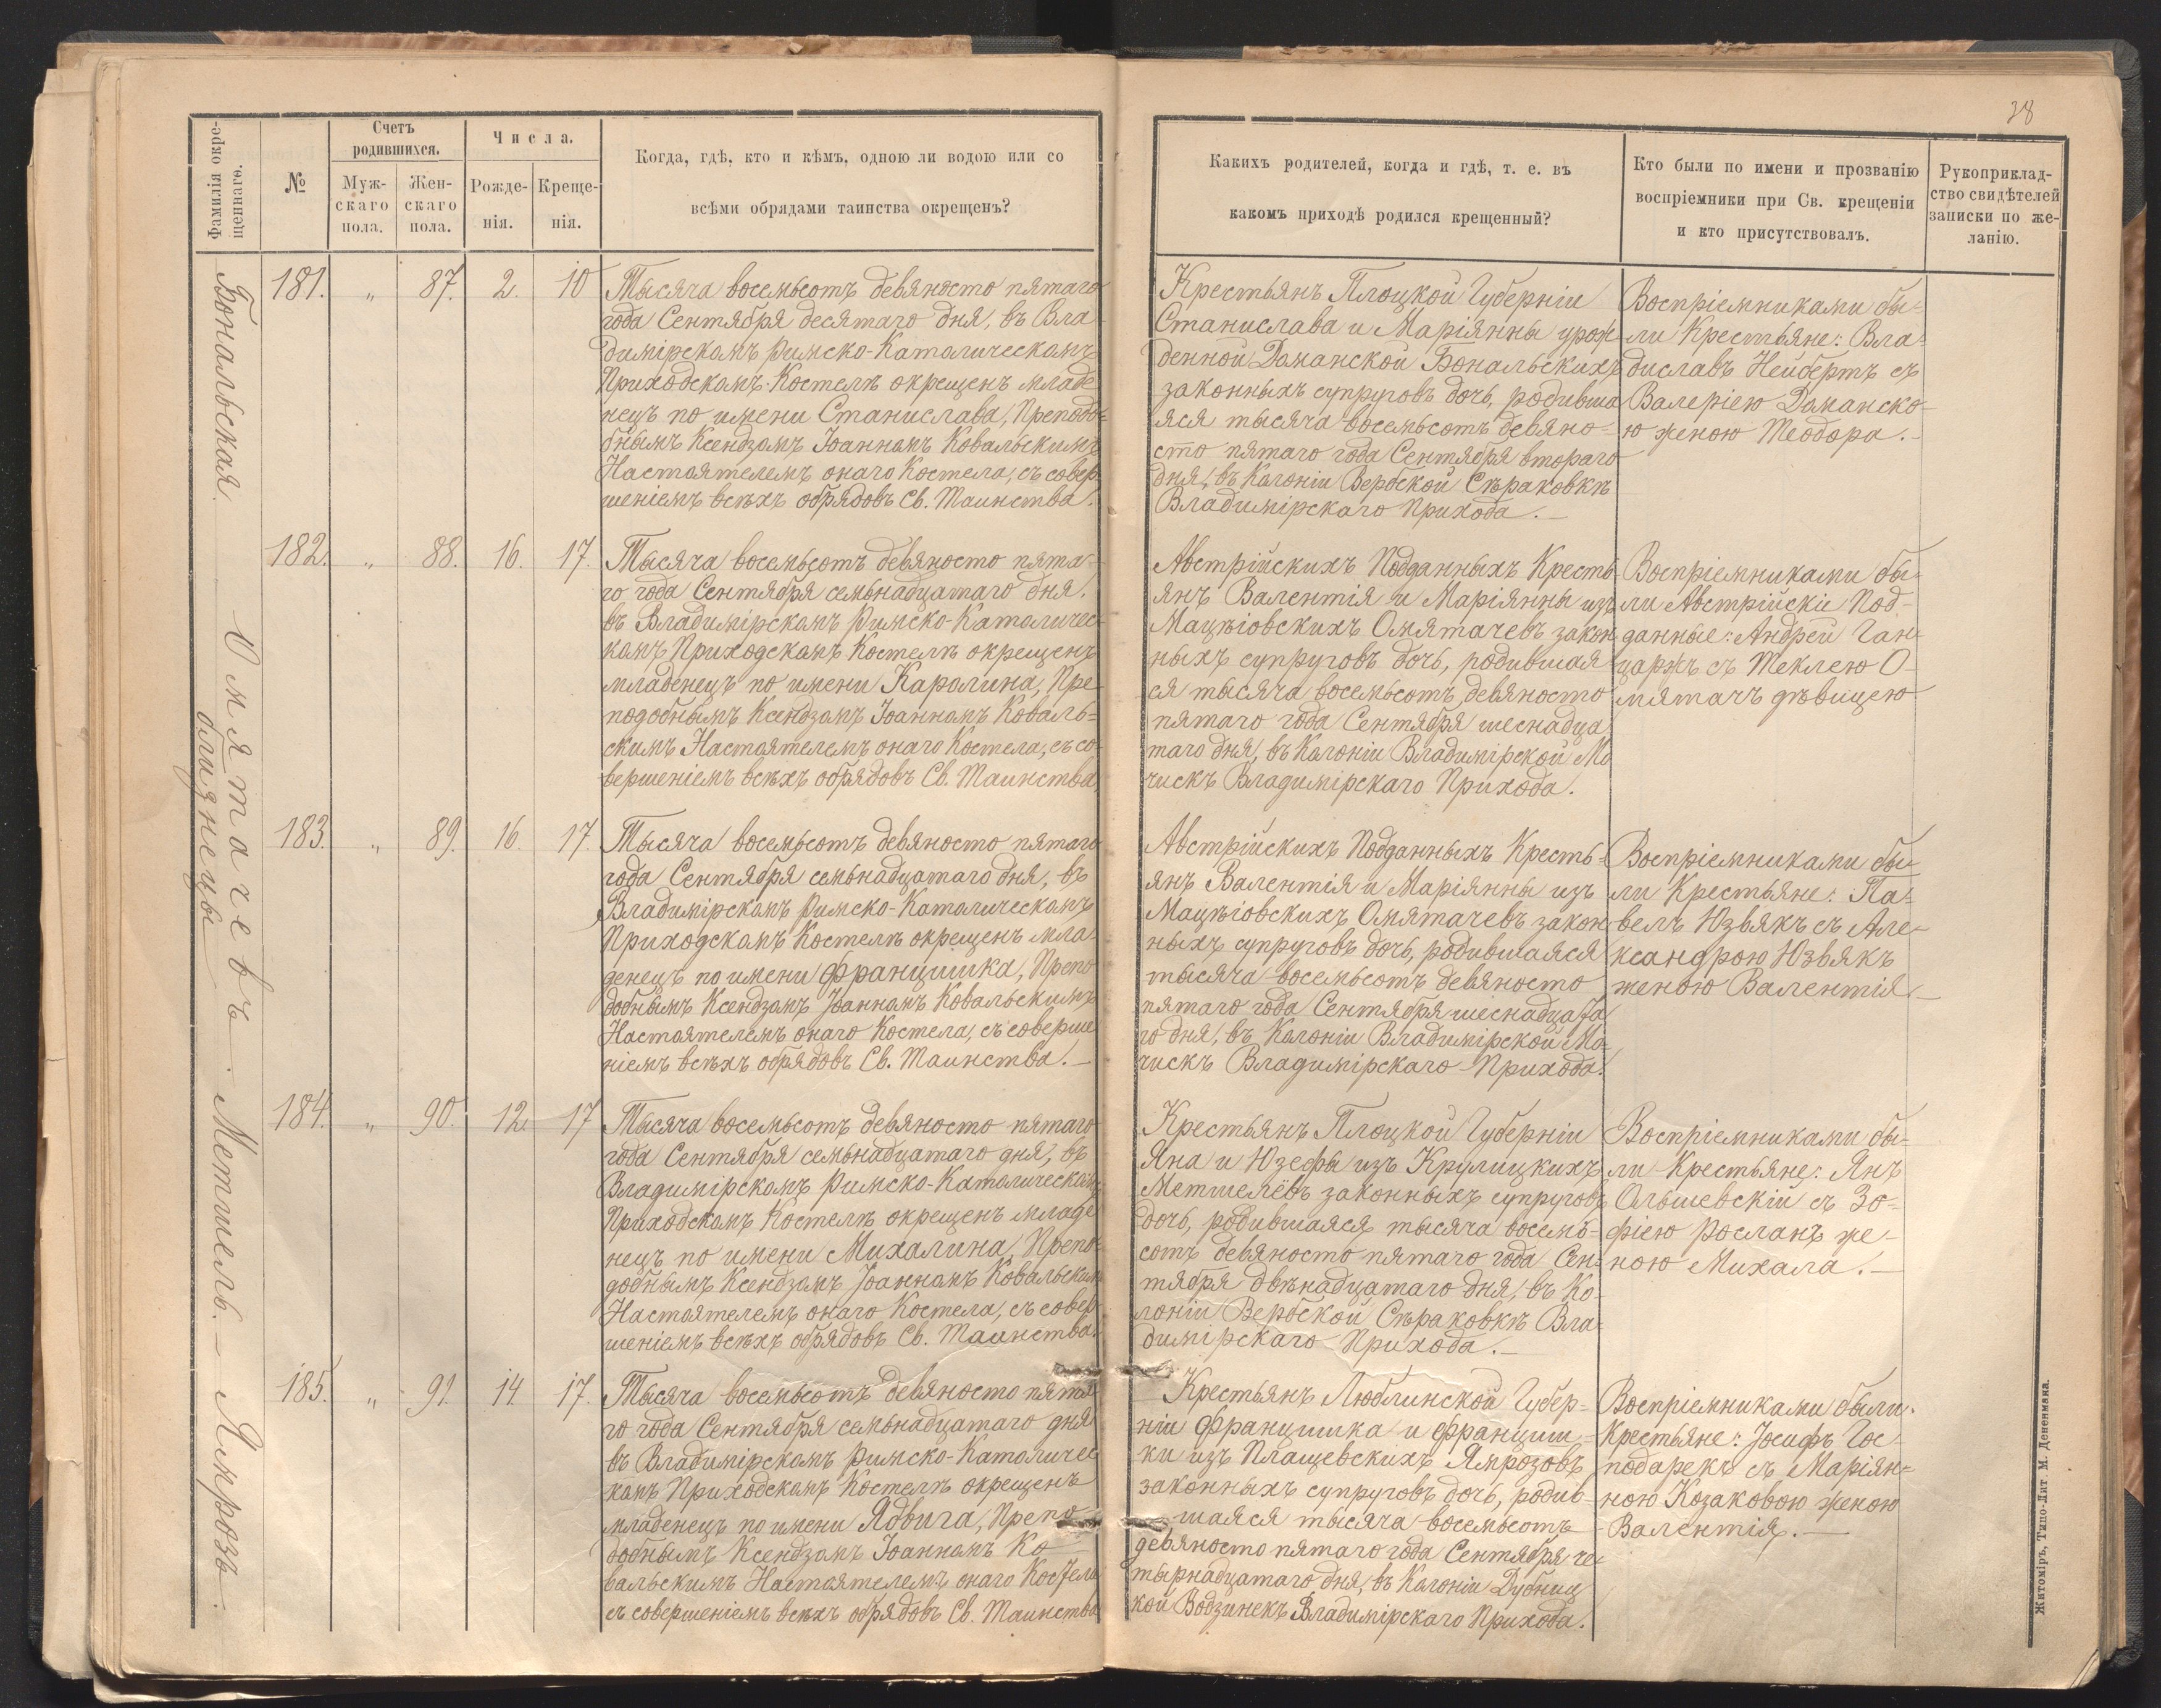 38
Фамилія окре-
щеннаго.
№
Счетъ
родившихся.
Муж-
скаго
пола.
Жен-
скаго
пола.
Числа.
Рожде-
нія.
Креще-
нія.
Когда, гдѣ, кто и кѣмъ, одною ли водою или со
всѣми обрядами таинства окрещенъ?
Какихъ родителей, когда и гдѣ, т. е. въ
какомъ приходѣ родился крещенный?
Кто были по имени и прозванію
воспріемники при Св. крещеніи
и кто присутствовалъ.
Рукоприклад-
ство свидѣтелей
записки по же-
ланію.
Бональская.
181. „ 87. 2. 10
Тысяча восемьсотъ девяносто пятаго
года Сентября десятаго дня, въ Вла
димірскомъ Римско-Католическомъ
Приходскомъ Костелѣ окрещенъ младе
нецъ по имени Станислава, Преподо-
бнымъ Ксендзомъ Іоанномъ Ковальскимъ
Настоятелемъ онаго Костела, съ совер
шеніемъ всѣхъ обрядовъ Св. Таинства.
Крестьянъ Плоцкой Губерніи
Станислава и Маріянны урож
денной Даманской Бональскихъ
законныхъ супруговъ дочь, родивша
яся тысяча восемьсотъ девяно-
сто пятаго года Сентября втораго
дня, въ Колоніи Вербской Сѣраковкѣ
Владимірскаго Прихода.
Воспріемниками бы-
ли Крестьяне: Вла-
диславъ Нейбертъ съ
Валеріею Даманско-
ю женою Теодора.
Омятачевъ
близнецы
182. „ 88. 16. 17.
Тысяча восемьсотъ девяносто пята-
го года Сентября семьнадцатаго дня,
въ Владимірскомъ Римско-Католичес-
комъ Приходскомъ Костелѣ окрещенъ
младенецъ по имени Каролина, Пре-
подобнымъ Ксендзомъ Іоанномъ Коваль-
скимъ Настоятелемъ онаго Костела, съ со-
вершеніемъ всѣхъ обрядовъ Св. Таинства.
Австрійскихъ Подданныхъ Кресть-
янъ Валентія и Маріянны изъ
Мацѣіовскихъ Омятачевъ закон
ныхъ супруговъ дочь, родившая
ся тысяча восемьсотъ девяносто
пятаго года Сентября шеснадца
таго дня, въ Колоніи Владимірской Мо
чискѣ Владимірскаго Прихода.
Воспріемниками бы-
ли Австрійскіе Под-
данные: Андрей Ган-
царжъ съ Теклею О-
мятачъ дѣвицею
183. „ 89. 16. 17.
Тысяча восемьсотъ девяносто пятаго
года Сентября семьнадцатаго дня, въ
Владимірскомъ Римско-Католическомъ
Приходскомъ Костелѣ окрещенъ мла-
денецъ по имени Францишка, Препо
добнымъ Ксендзомъ Іоанномъ Ковальскимъ
Настоятелемъ онаго Костела, съ соверше
ніемъ всѣхъ обрядовъ Св. Таинства.
Австрійскихъ Подданныхъ Кресть-
янъ Валентія и Маріянны изъ
Мацѣіовскихъ Омятачевъ закон
ныхъ супруговъ дочь, родившаяся
тысяча восемьсотъ девяносто
пятаго года Сентября шеснадцата
го дня, въ Колоніи Владимірской Мо-
чискѣ Владимірскаго Прихода.
Воспріемниками бы-
ли Крестьяне: Па-
велъ Юзвякъ съ Але-
ксандрою Юзвякъ
женою Валентія.
Метшель.
184. „ 90. 12. 17
Тысяча восемьсотъ девяносто пятаго
года Сентября семьнадцатаго дня, въ
Владимірскомъ Римско-Католическомъ
Приходскомъ Костелѣ окрещенъ младе
нецъ по имени Михалина, Препо-
добнымъ Ксендзомъ Іоанномъ Ковальским
Настоятелемъ онаго Костела, съ совер
шеніемъ всѣхъ обрядовъ Св. Таинства.
Крестьянъ Плоцкой Губерніи
Яна и Юзефы изъ Крулицкихъ
Метшелёвъ законныхъ супруговъ
дочь, родившаяся тысяча восемь-
сотъ девяносто пятаго года Сен-
тября двѣнадцатаго дня, въ Ко-
лоніи Вербской Сѣраковкѣ Вла-
димірскаго Прихода.
Воспріемниками бы-
ли Крестьяне: Янъ
Ольшевскій съ Зо-
фіею Росланъ же-
ною Михала.
Ямрозъ.
185. „ 91. 14 17.
Тысяча восемьсотъ девяносто пята
го года Сентября семьнадцатаго дня
въ Владимірскомъ Римско-Католичес
комъ Приходскомъ Костелѣ окрещенъ
младенецъ по имени Ядвига, Препо
добнымъ Ксендзомъ Іоанномъ Ко
вальскимъ Настоятелемъ онаго Костела
съ совершеніемъ всѣхъ обрядовъ Св. Таинства
Крестьянъ Люблинской Губер-
ніи Францишка и Францишъ-
ки изъ Плащевскихъ Ямрозовъ
законныхъ супруговъ дочь, родив-
шаяся тысяча восемьсотъ
девяносто пятаго года Сентября че-
тырнадцатаго дня, въ Колоніи Дубниц
кой Водзинекъ Владимірскаго Прихода.
Воспріемниками были
Крестьяне: Іосифъ Гос
подарекъ съ Маріян-
ною Козаковою женою
Валентія.
Житоміръ, Типо-Лит. М. Дененмана.